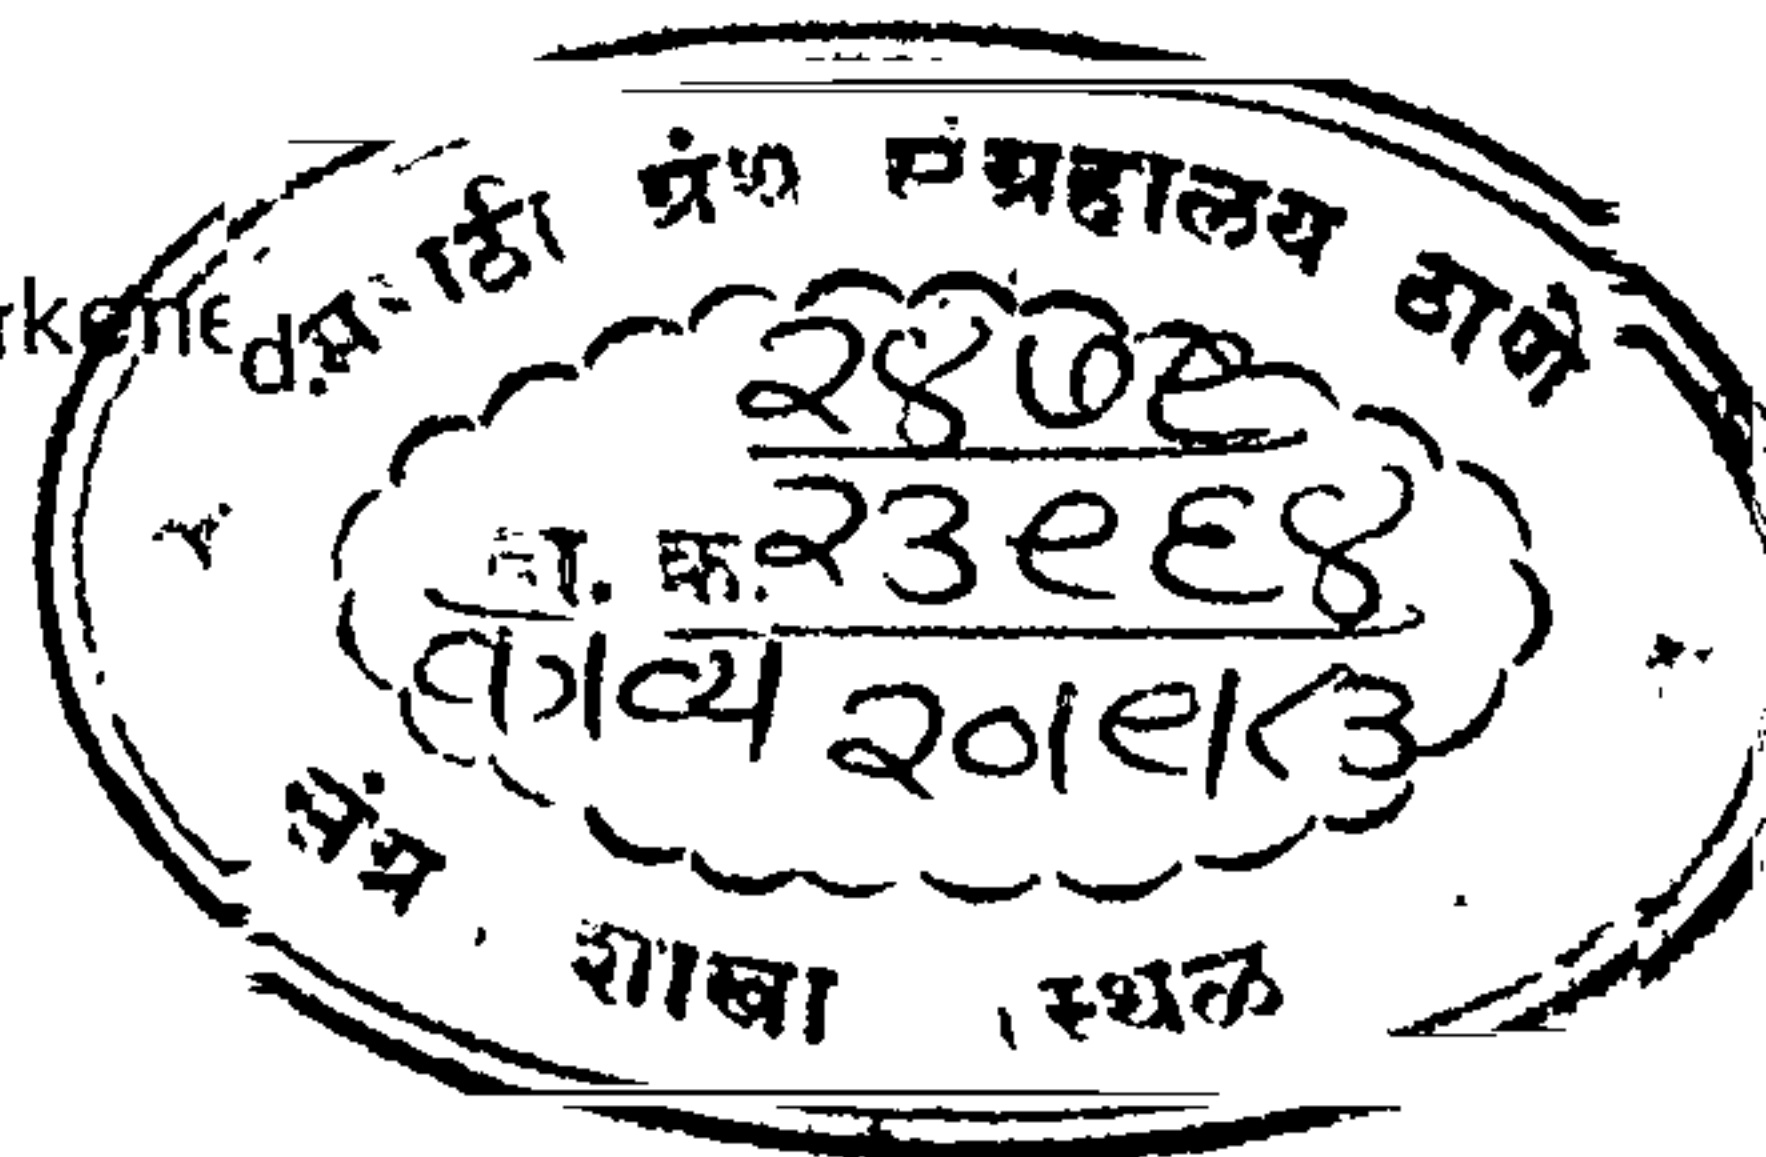 मराठी ग्रंथ संग्रहालय ठाणे
२४७९
दा. क्र. २३९६४
काव्य २०।९।८३
शाखा स्थळ